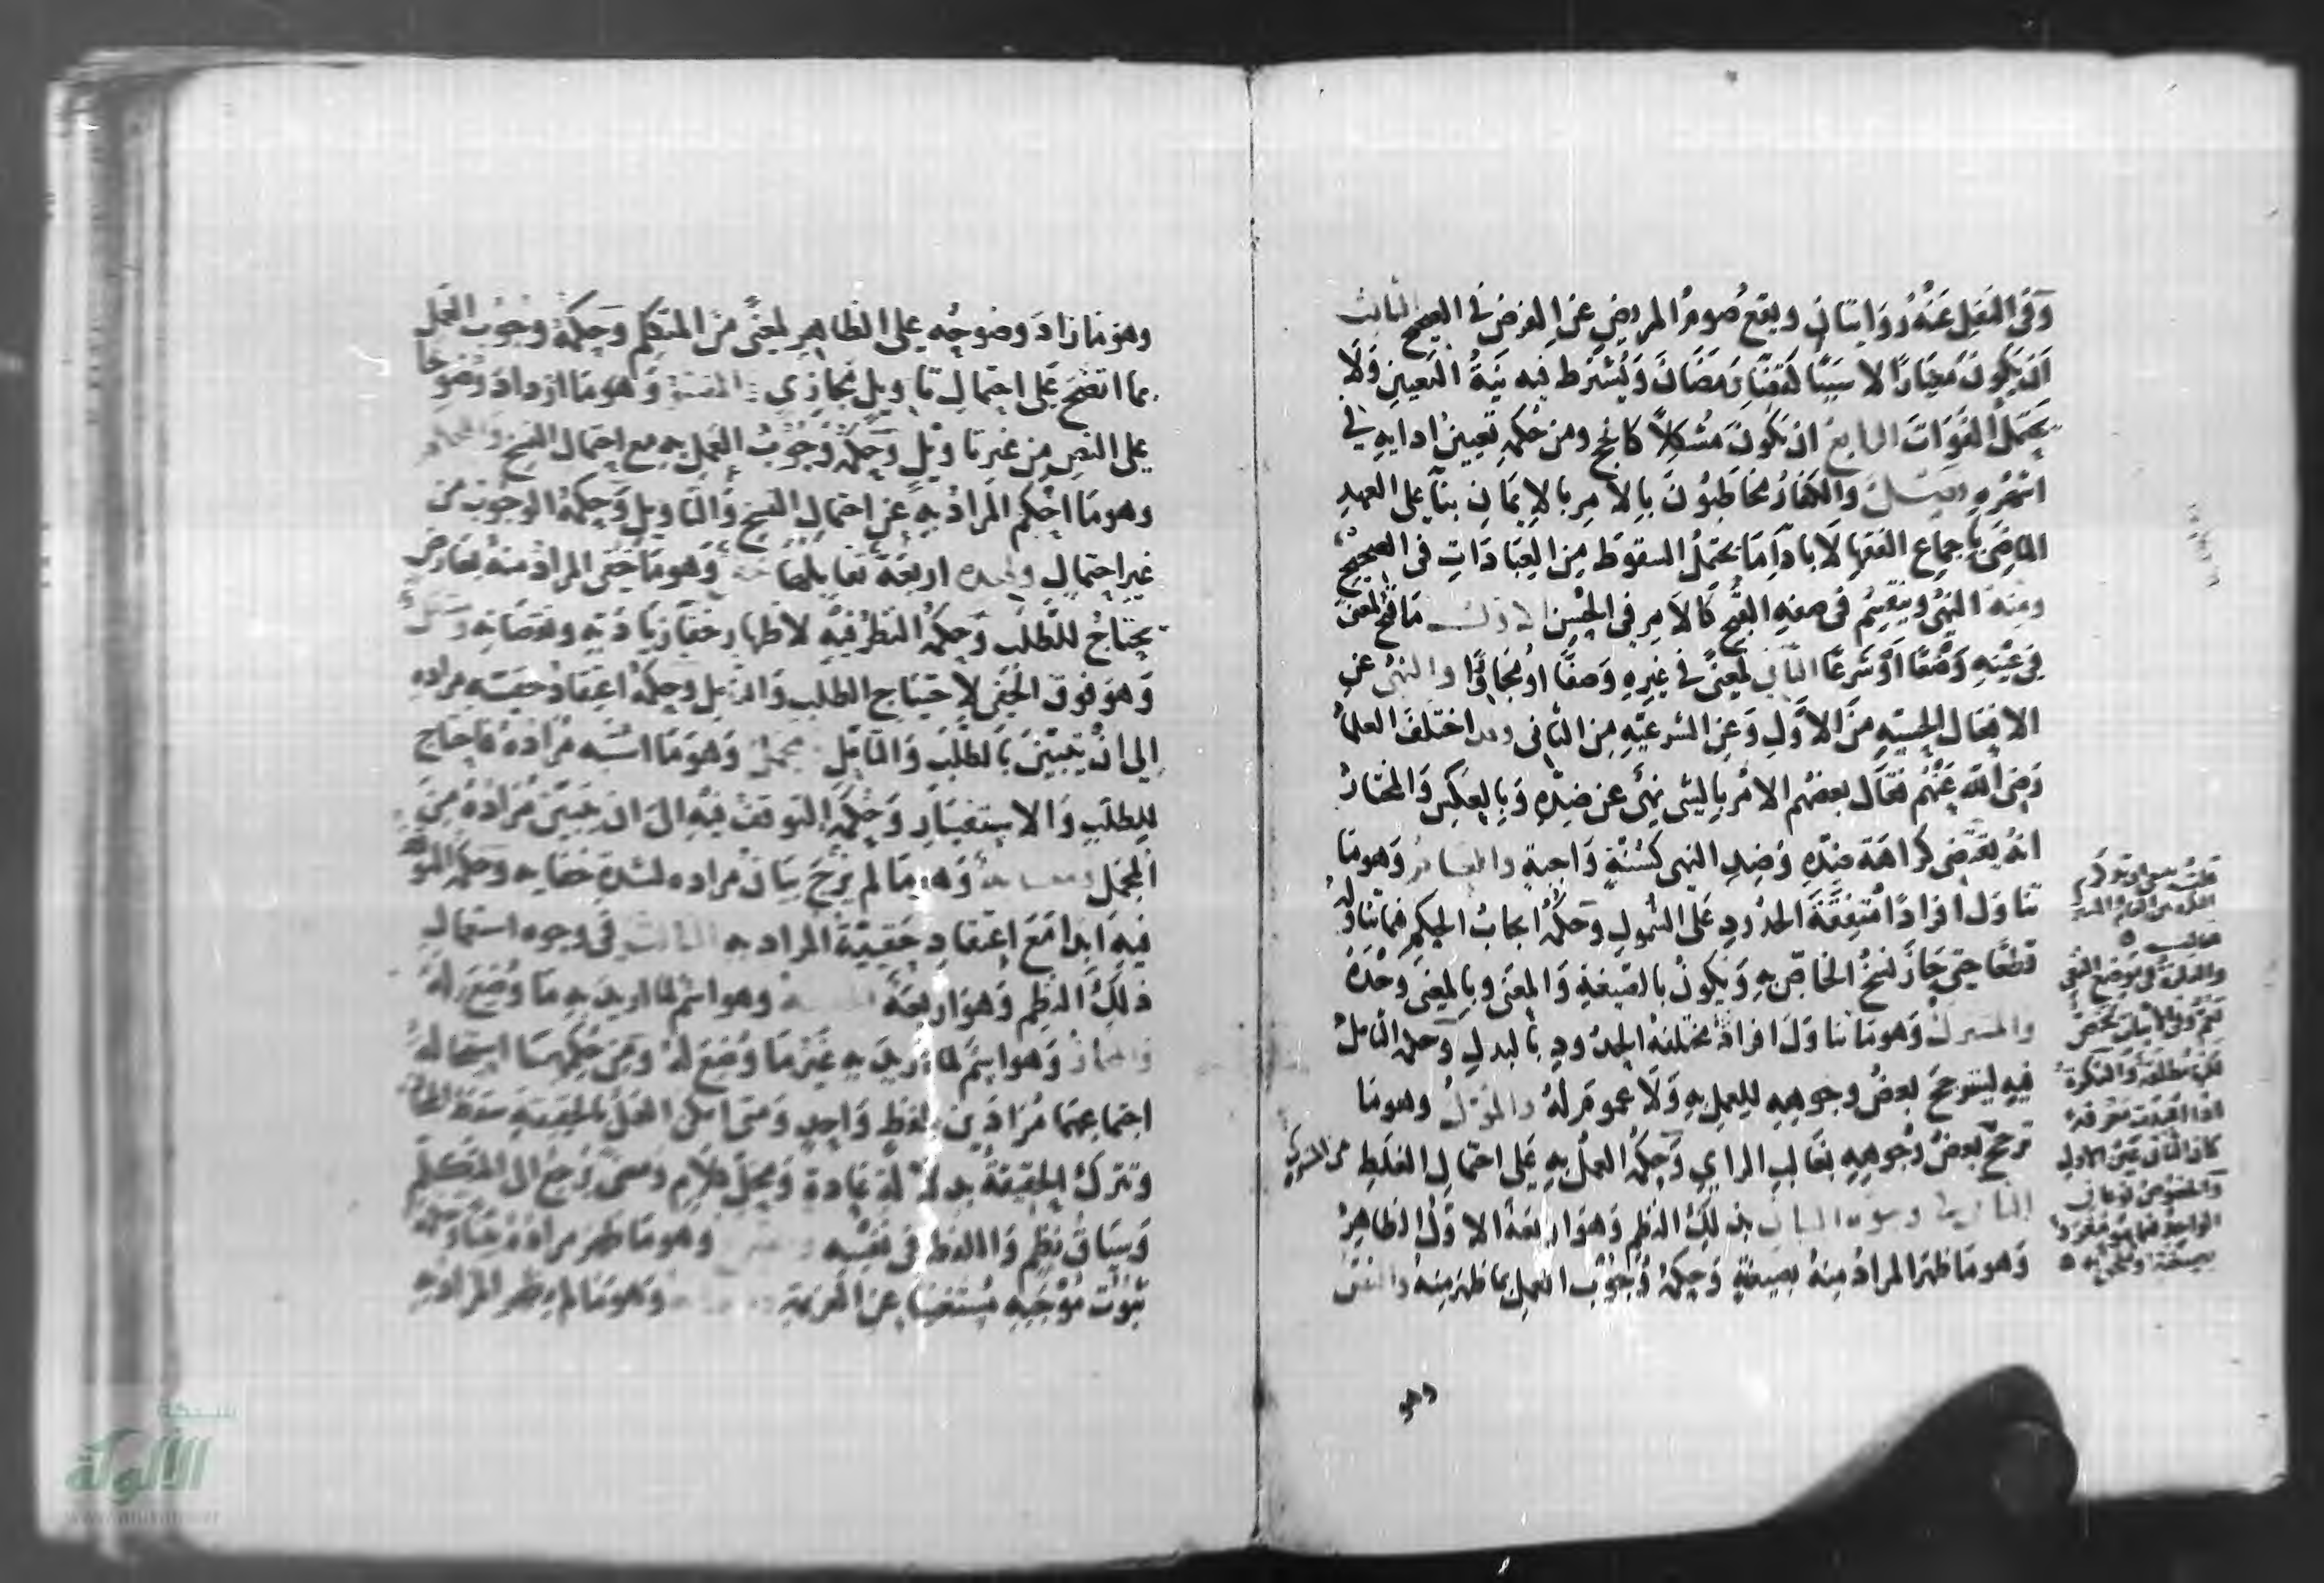 وَفي النَفِل عَنْهُ رِوَايتانِ ويقع صومُ المريضِ عَنِ الفرضِ في الصحيح الثالث
اَنْ يَكونَ مِعْيَارًا لا سَبَبًا كقضَاءِ رَمَضَانَ وَيُشْتَرط فيه نِيَةُ التَعيينِ وَلَا
يحتملُ الفَوَاتَ الرابعُ ان يَكونَ مُشكِلاً كالحج ومن حُكمِه تَعيينُ ادايهِ في
اشهُرِهِ والكفارُ مُخاطَبُونَ بِالامرِ بالاِيمَانِ بنآءً على العهدِ
الماضِي بإجماعِ الفقهآءِ لا بأدآءِ مَا يحتمِلُ السقوط مِنَ العِبَادَاتِ في الصحيح
ومنه النهيُ وينقسِمُ في صفةِ القُبحِ كالاَمرِ في الحُسْنِ الاول مَا قَبُحَ لِمعنًى
في عَيْنِهِ وَضْعًا اَوْ شَرعًا الثاني لِمعنًى في غيرِهِ وَصفًا اوْ مُجَاوِرًا والنهيُ عنِ
الافعَالِ الحِسيَّةِ مِنَ الاَوَّلِ وَعَنِ الشرعيّةِ مِنَ الثاني وقد اختلَفَ العلمآءُ
رَضيَ اللّه عَنْهُم فقَالَ بعضُهم الامْرُ بالشيءِ نهيٌ عن ضِدِّهِ وَبِالعَكسِ وَالمختارُ
انهُ يقتضِي كراهَة ضدّهِ وَضِد النهي كسُنَّةٍ وَاجبةٍ والعام وَهومَا
تنَاوَل افرَادًا مُتفِقَةَ الحدُودِ عَلى الشمولِ وَحكمُهُ ايجابُ الحكمِ فيما تناولهُ
قطعًا حتى جَازَ نسخُ الخاصِّ بهِ وَيَكونُ بالصّيغةِ وَالمعنَى وبِالمعنَى وَحْدَهُ
والمشترك وَهومَا تنَاوَلَ افرادًا مختلفةَ الحدُودِ بالبدلِ وَحكمه التأملُ
فيهِ ليترجحَ بعضُ وجوهِهِ للعملِ بهِ وَلَا عمومَ لهُ والمؤوَّلُ وهومَا
ترجحَ بعضُ وُجوهِهِ بغَالبِ الرايِ وَحكمُهُ العملُ بهِ عَلى احتمالِ الغلَطِ من المشترك
الثاني في وجوه البيان بذلِكَ النظمِ وَهوَ اربَعَةٌ الاوَّلُ الظاهِرُ
وَهومَا ظهَرَ المرادُ مِنهُ بصيغتهِ وَحكمُهُ وُجُوبُ العملِ بمَا ظهَرَ مِنهُ والنص
والنكرةُ في موضع النفي
تعمّ وفي الاثبات تخصّ
لكن مطلقة والنكرة
اذا اعيدت معرفة
كان الثاني عين الاول
وهو
وهوَ مَا زادَ وضوحُه على الظاهِرِ لمعنًى مِنَ المتكلِّمِ وَحكمُهُ وجُوبُ العَملِ
بما اتضحَ عَلى احتمالِ تأويلٍ مجازِي المفسَّر وَهومَا ازدادَ وُضوحًا
على النصِ من غيرِ تأويلٍ وَحكمُهُ وُجُوبُ العَمَلِ بهِ مع احتمالِ النسخِ والمحكم
وهومَا اُحْكِمَ المرادُ بهِ عَنِ احتمالِ النسخِ وَالتاويلِ وَحكمُهُ الوجُوبُ مِن
غيرِ احتمالٍ ولهذه اربَعَة تقابلهَا وَهومَا خَفِيَ المرادُ منهُ بعَارضٍ
يحتاجُ للطَّلبِ وَحكمُهُ النظرُ فيهِ لاظهارِ خَفآءِ زيَادَتِهِ ونقصَانِهِ
وَهوَ فوقَ الخَفيِّ لاِحتيَاجِ الطلبِ وَالتأملِ وحكمُهُ اعتِقَادُ حقيّتهِ مرادهِ
الى انْ يتبيّنَ بَالطَّلَبِ وَالتأمّلِ مجمَل وَهومَا اشتبه مُرَادهُ فاحتاج
لِلطلَبِ وَالاستفسَارِ وَحُكمُهُ التوقفُ فيهِ الى ان يتبيّنَ مُرَادهُ مِنَ
المجمِلِ ومتشابه وَهومَا لم يُرْجَ بيَانُ مُرادهِ لشدةِ خفَايهِ وَحكمُهُ التوقف
فيهِ اَبدا مَعَ اعتقادِ حقيّة المرادِ به الثالث في وجوه استعمالِ
ذلِكَ النظِمِ وَهوَ اربَعَةٌ الحقيقة وهو اسمٌ لما اريدَ بِهِ مَا وُضِعَ لهُ
والمجاز وَهواسمٌ لما اُرِيدَ بهِ غَيْرُ مَا وُضعَ لهُ وَمِن حُكمِهمَا استحَالةُ
اجتمَاعِهمَا مُرَادَينِ بلفظٍ وَاحِدٍ وَمتى امكنَ العمَلُ بالحقيقةِ سقط المجاز
وتتركُ الحقيقةُ بدلالةِ عَادةٍ وَمحلِّ كلامٍ وَمعنى يَرْجعُ الى المتكلّمِ
وَسِيَاقِ نظمٍ وَاللفظِ في نفسهِ وهومَا ظهرَ مرادهُ
ثبُوتُ مُوجَبهِ مُستغنيًا عنِ العَزيمةِ وَهومَا لم يظهرِ المرادُ بهِ
شبكة
الألوكة